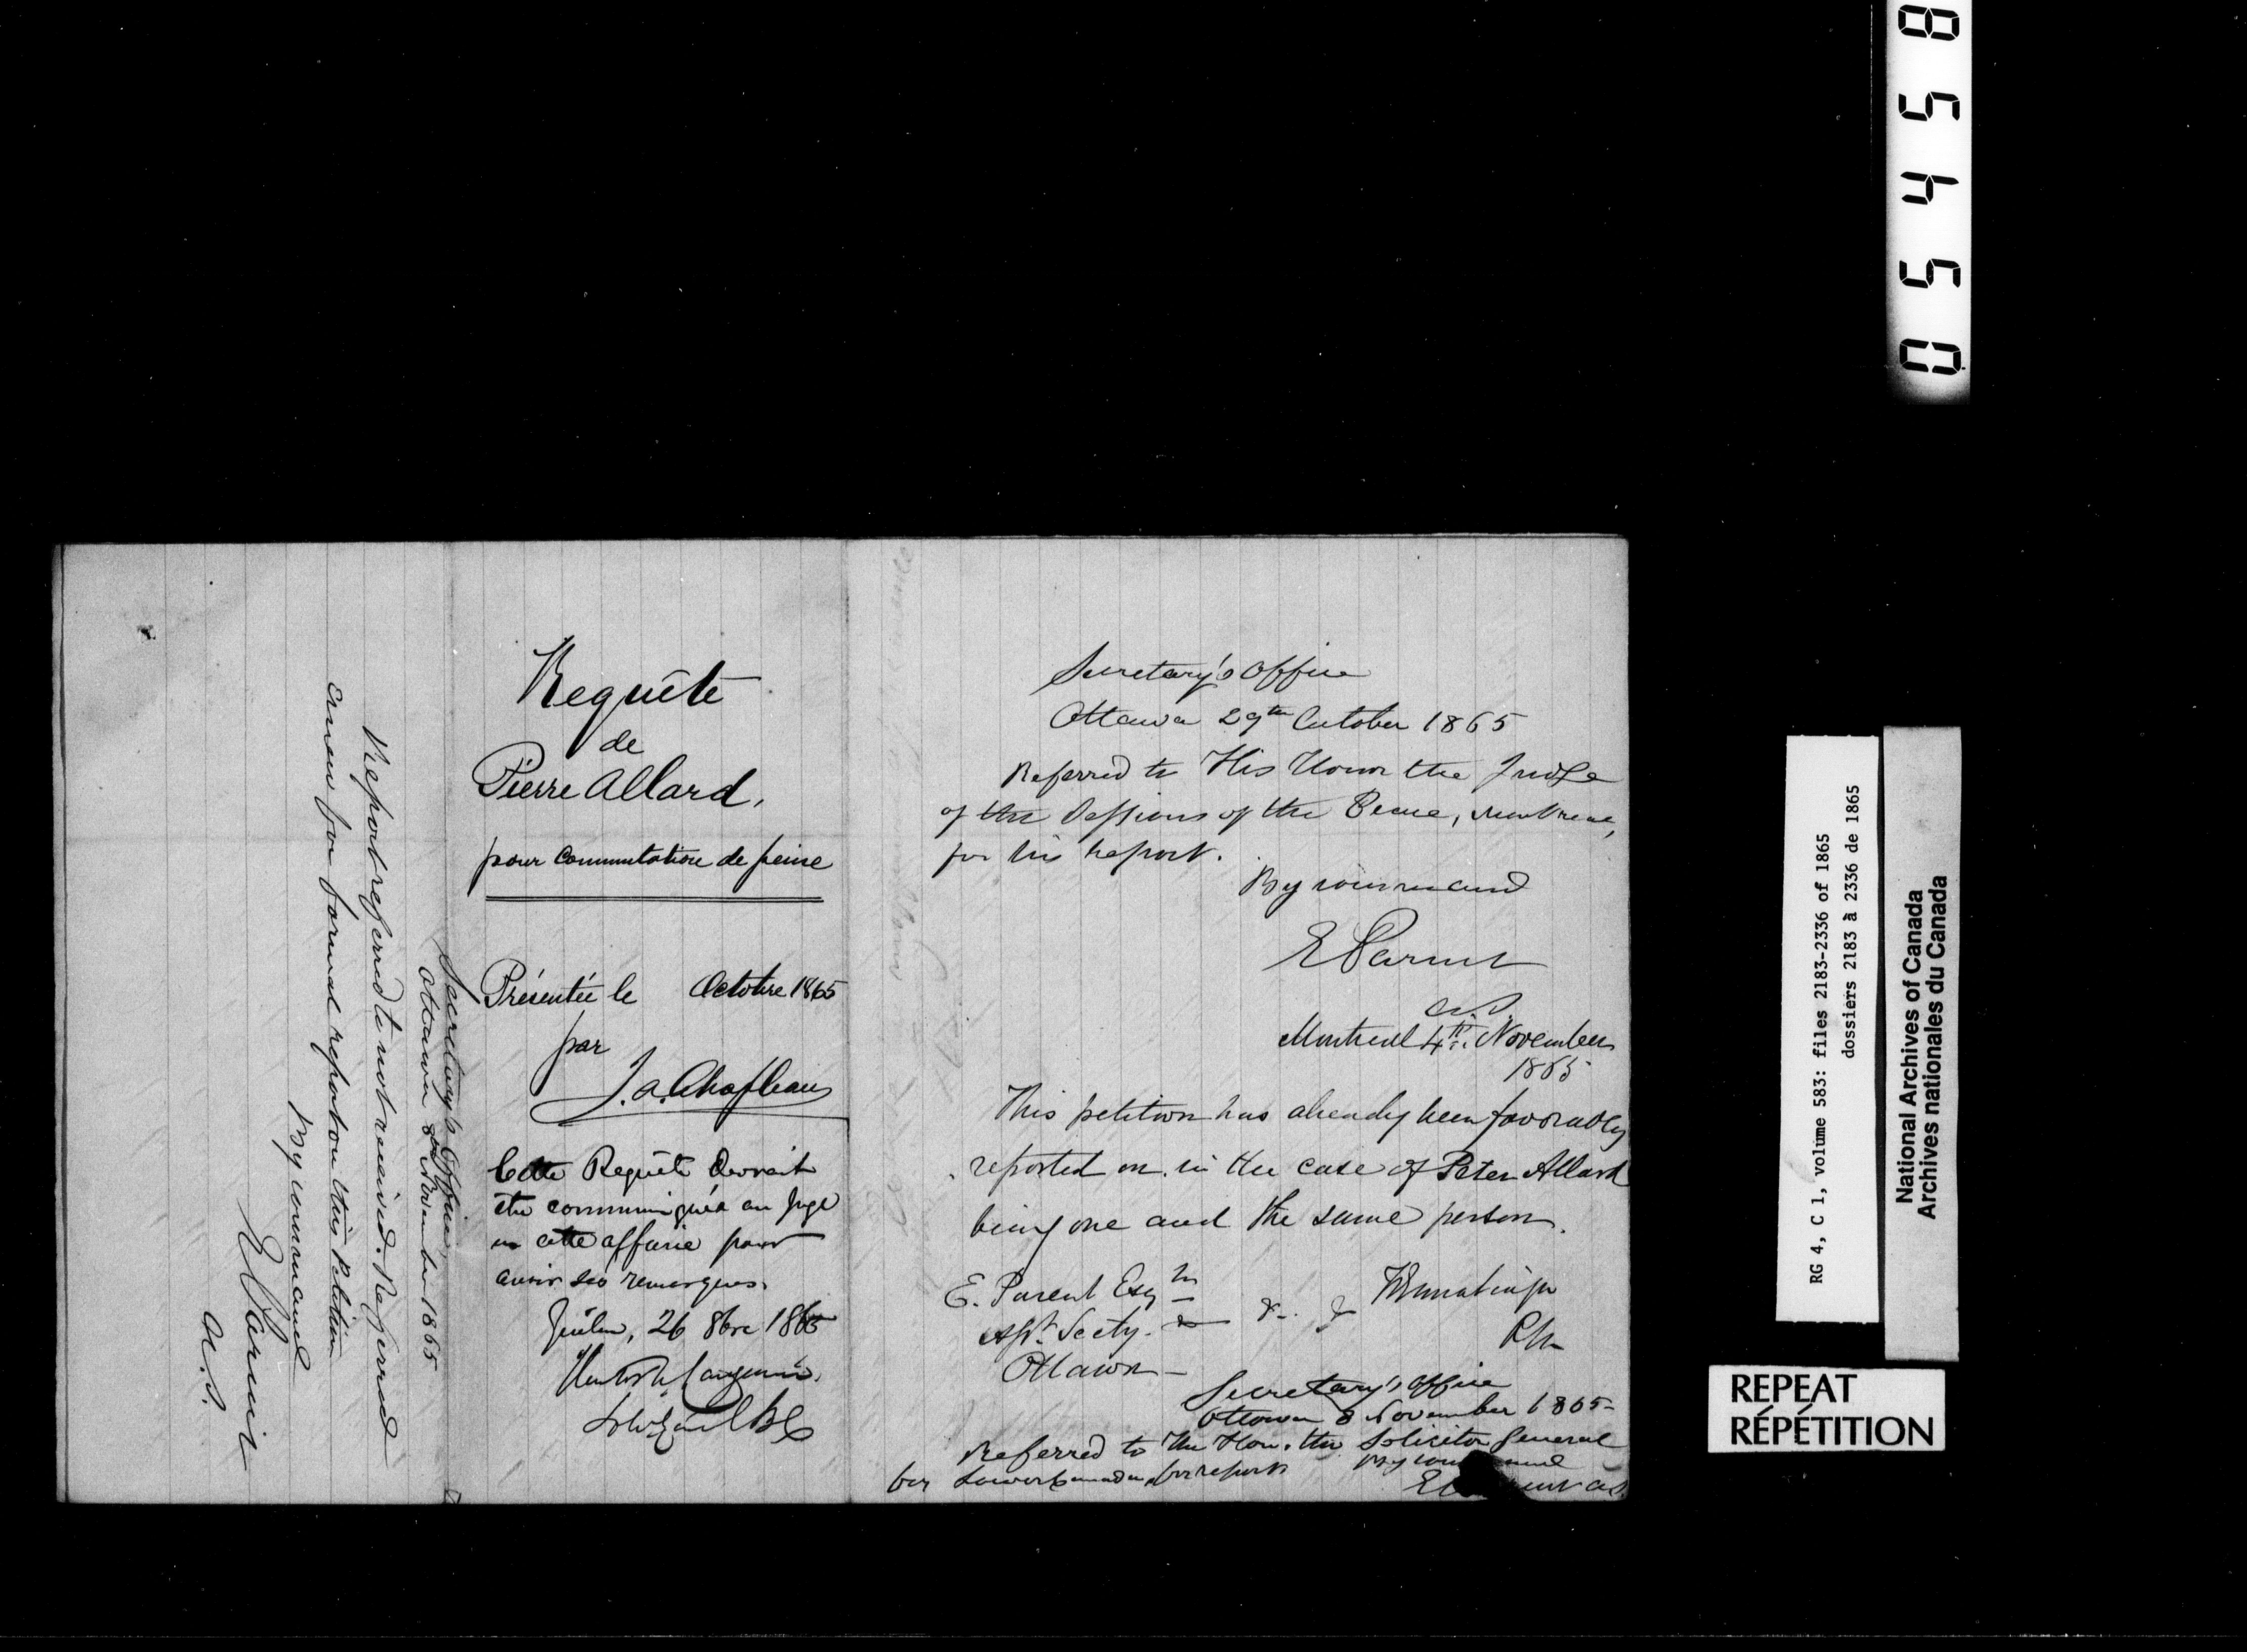 Secretary's Office
Ottawa 8th November 1865
Report referred to not received. Referred
anew for formal report on this Petition
By command
E Parent
A.S.
Requête
de
Pierre Allard,
pour commutation de peine
Présentée le Octobre 1865
par
J. A. Chapleau
Cette Requête devrait
être communiquée au juge
en cette affaire pour
avoir ses remarques.
Québec, 26 8bre 1865
Hector L. Langevin
Sol. Génl. B.C.
Secretary's Office
Ottawa 29th October 1865
Referred to His Honor the Judge
of the Sessions of the Peace, Montreal,
for his report.
By command
E Parent
A.S.
Montreal 4th November
1865
This petition has already been favorably
reported on in the case of Peter Allard
being one and the same person.
E. Parent Esq
Asst. Secty. &c. &
Ottawa
Secretary's Office
Ottawa 8 November 1865
Referred to the Hon. the Solicitor General
for Lower Canada for report By command
E Parent A.S.
0 5 4 5 8
RG 4, C 1, volume 583: files 2183-2336 of 1865
dossiers 2183 à 2336 de 1865
National Archives of Canada
Archives nationales du Canada
REPEAT
RÉPÉTITION